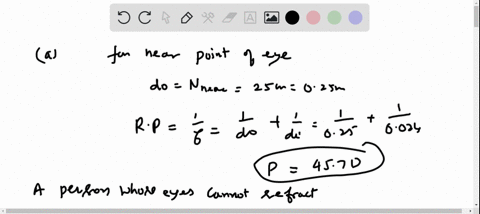 (a) for near point of eye
do = Nnear = 25m = 0.25m
R.P = 1/f = 1/do + 1/di = 1/0.25 + 1/0.024
P = 45.7D
A person whose eyes cannot refract